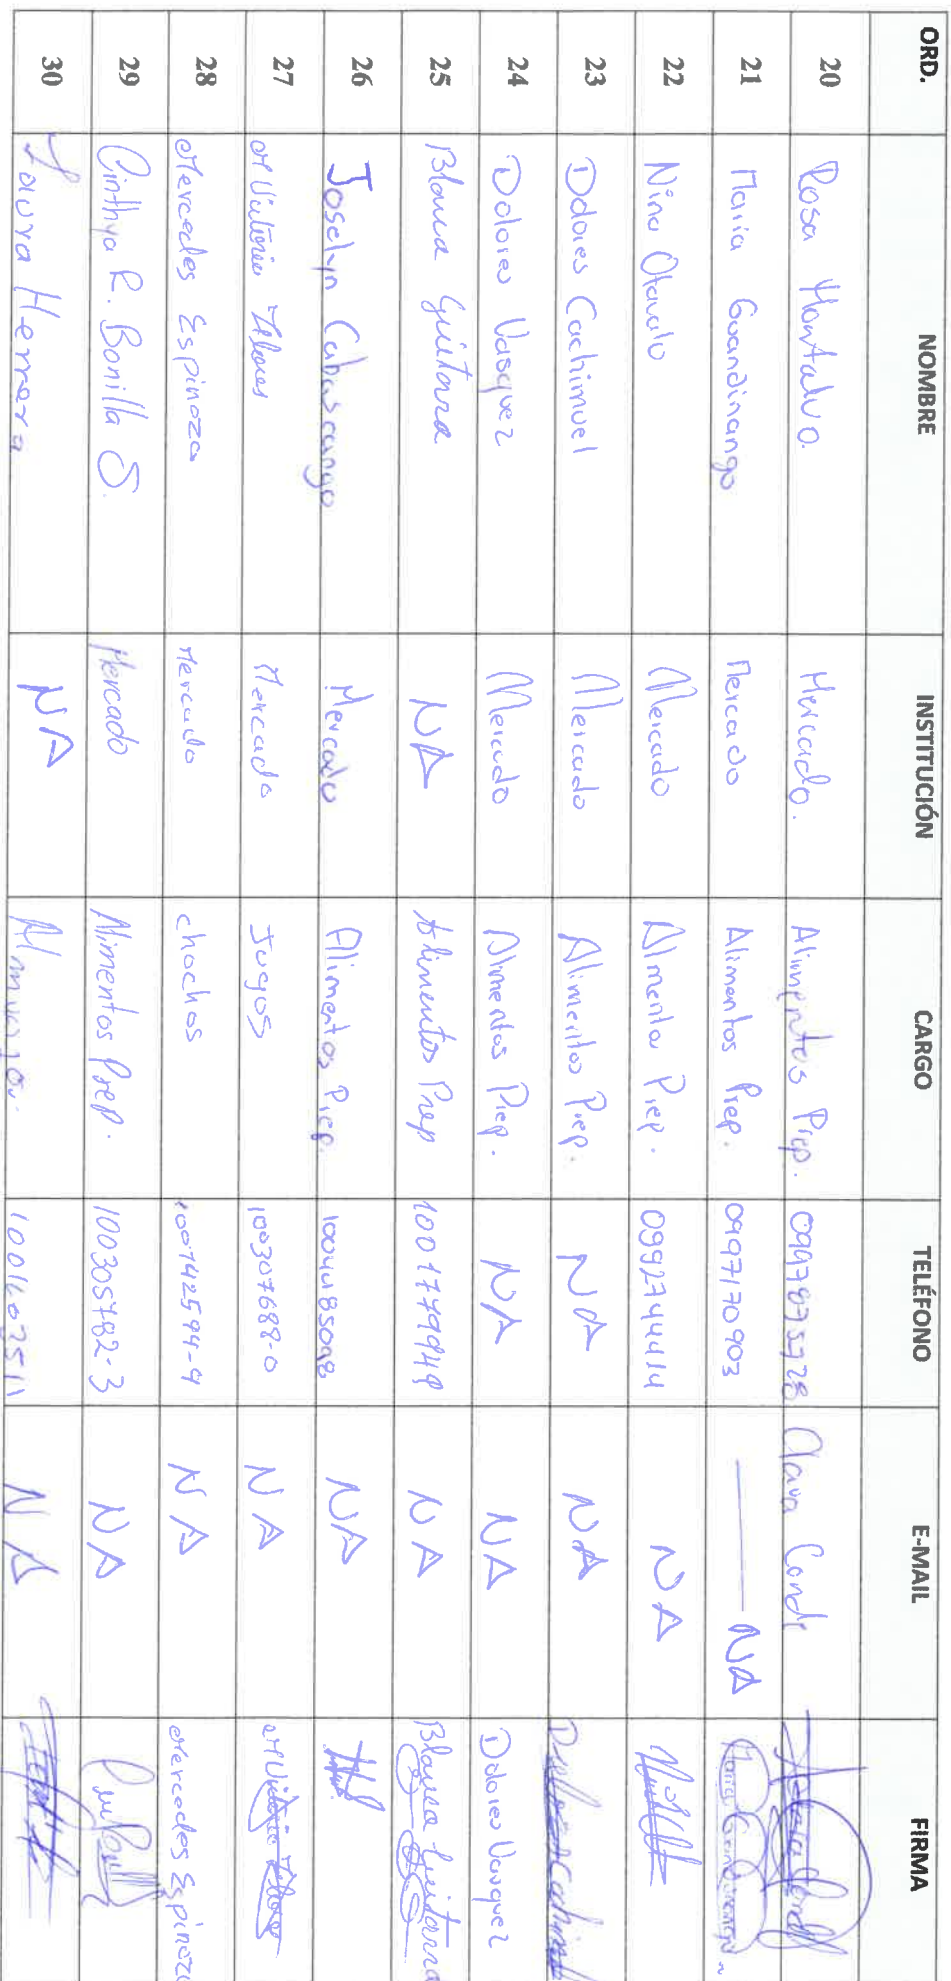 ORD. NOMBRE INSTITUCIÓN CARGO TELÉFONO E-MAIL FIRMA
20 Rosa Montalvo. Mercado. Alimentos Prep. Clara Conde
21 Maria Guandinango Mercado Alimentos Prep. 0997170903 NA Maria Guandinango
22 Nina Otavalo Mercado Alimentos Prep. 0992744414 NA
23 Dolores Cachimuel Mercado Alimentos Prep. NA NA
24 Dolores Vasquez Mercado Alimentos Prep. NA NA Dolores Vasquez
25 Blanca Guitarra NA Alimentos Prep NA Blanca Guitarra
26 Joselyn Cabascango Mercado Alimentos Prep. 1004485098 NA
27 Mercado Jugos 100307688-0 NA
28 Mercedes Espinoza Mercado chochos 100142594-9 NA Mercedes Espinoza
29 Cinthya R. Bonilla S. Mercado Alimentos Prep. 100305782-3 NA
30 Laura Herrera NA NA